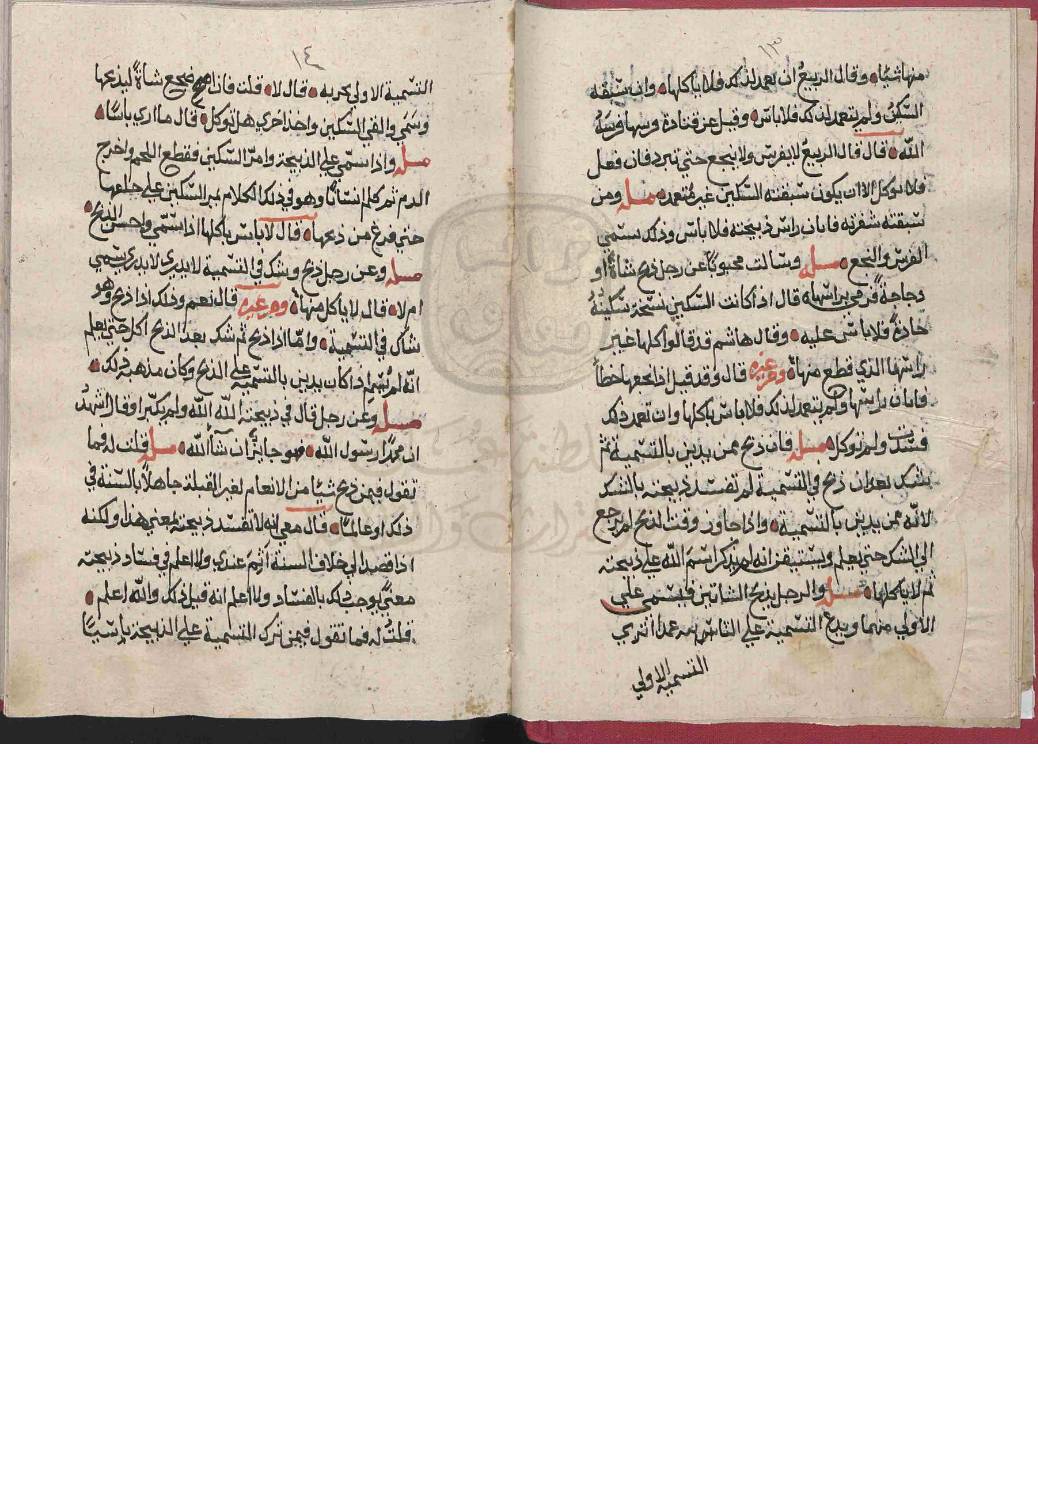 ١٣
منها شيئا وقال الربيع ان تعمد لذلك فلا ياكلها وان سبقه
السكين ولم يتعمد لذلك فلا باس وقيل عن قتادة
الله قال قال الربيع لا يفرس ولا ينخع حتي تبرد فان فعل
فلا توكل الا ان يكون سبقته السكين غير متعمد مسله ومن
سبقته شفرته فابان راس ذبيحته فلا باس وذلك يسمي
الفرس والنخع مسله وسالت محبوبا عن رجل ذبح شاة او
دجاجة فرمي براسها قال اذا كانت السكين سكينة
حادة فلا باس عليه وقال هاشم قد قالوا اكلها غير
راسها الذي قطع منها ومن غيره قال وقد قيل اذا نخعها خطأ
فابان راسها ولم يتعمد لذلك فلا باس باكلها وان تعمد ذلك
فسدت ولم توكل مسله فان ذبح ممن يدين بالتسمية ثم
يشك بعد ان ذبح في التسمية لم تفسد ذبيحته بالشك
لانه ممن يدين بالتسمية واذا جاوز وقت الذبح لم يرجع
الي الشك حتي يعلم ويستيقن انه لم يذكر اسم الله علي ذبيحته
ثم لا ياكلها مسله والرجل يذبح الشاتين فيسمي علي
الاولي منهما ويدع التسمية علي الثانية عمدا اتري
التسمية الاولي
١٤
التسمية الاولي تجزيه قال لا قلت فان اضجع شاة ليذبحها
وسمي والقي السكين واخذ اخري هل توكل قال ما اري باسا
مسله واذا سمي علي الذبيحة وامر السكين فقطع اللحم واخرج
الدم ثم كلم انسانا وهو في ذلك الكلام يمر السكين علي حلقها
حتي فرغ من ذبحها قال لا باس باكلها اذا سمي واحسن الذبح
مسله وعن رجل ذبح وشك في التسمية لا يدري لا يدري سمي
ام لا قال لا ياكل منها ومن غيره قال نعم وذلك اذا ذبح وهو
شاك في التسمية واما اذا ذبح ثم شك بعد الذبح اكل حتي يعلم
انه لم يسم اذا كان يدين بالتسمية علي الذبح وكان مذهبه ذلك
مسله وعن رجل قال في ذبيحته لله الله ولم يكبر او قال اشهد
ان محمدا رسول الله فهو جايز ان شا الله مسله قلت له فما
تقول فيمن ذبح شيئا من الانعام لغير القبلة جاهلا بالسنة في
ذلك او عالما قال معي انه لا تفسد ذبيحته لمعني هذا ولكنه
اذا قصد الي خلاف السنة اثم عندي ولا اعلم في فساد ذبيحته
معني يوجب ذلك بالفساد ولا اعلم انه قيل ذلك والله اعلم
قلت له فما تقول فيمن ترك التسمية علي الذبيحة ناسيا